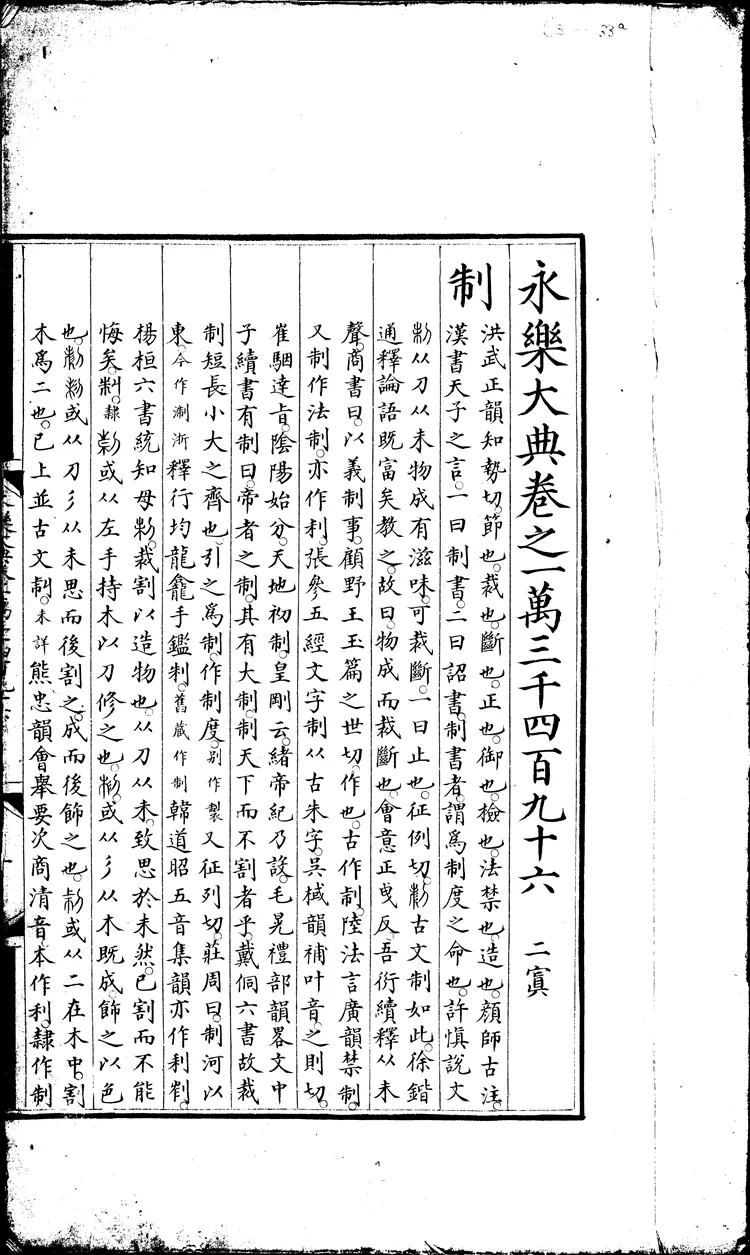 永樂大典卷之一萬三千四百九十六 二寘
制
洪武正韻知勢切。節也。裁也。斷也。正也。御也。檢也。法禁也。造也。顏師古注。
漢書天子之言。一曰制書。二曰詔書。制書者。謂爲制度之命也。許愼說文
从刀从未物成有滋味。可裁斷。一曰止也。征例切。古文制如此。徐鍇
通釋論語既富矣教之。故曰。物成而裁斷也。會意正曳反。吾衍續釋从未
聲。商書曰。以義制事。顧野王玉篇之世切。作也。古作制。陸法言廣韻禁制。
又制作法制。亦作利。張參五經文字制从古朱字。吳棫韻補叶音。之則切。
崔駰達旨。陰陽始分。天地初制。皇剛云。緒帝紀乃設。毛晃禮部韻畧文中
子續書有制曰。帝者之制。其有大制。制天下而不割者乎。戴侗六書故裁
制短長小大之齊也。引之爲制。作制度。別作製又征列切。莊周曰。制河以
東今作淛浙釋行均龍龕手鑑制。舊藏作制韓道昭五音集韻亦作利
楊桓六書統知母。裁割以造物也。从刀从未。致思於未然。已割而不能
悔矣。隸或从左手持木以刀修之也。或从彡从木既成。飾之以色
也。或从刀彡从未思而後割之。成而後飾之也。或从二在木中。割
木爲二也。已上並古文制。未詳熊忠韻會舉要次商清音。本作利。隸作制